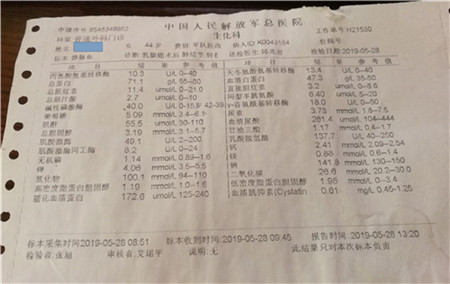 中国人民解放军总医院
生化科
工作单号 H21530
女 44岁
病人ID K0043564
检验日期 2019-05-28
项目 结果 单位 参考值 项目 结果 单位 参考值
丙氨酸氨基转移酶 10.3 U/L 0-40 天冬氨酸氨基转移酶 13.4 U/L 0-40
总蛋白 71.1 g/L 55-80 血清白蛋白 47.3 g/L 35-50
总胆红素 11.4 umol/L 0-21.0 直接胆红素 3.2 umol/L
总胆汁酸 2.7 umol/L 0-10 6.40 umol/L
碱性磷酸酶 40.0 U/L 18.0 U/L 0-50
葡萄糖 5.09 mmol/L 3.4-6.1 尿素 3.73 mmol/L
肌酐 55.5 umol/L 30-110 血清尿酸 281.4 umol/L 104-444
总胆固醇 3.19 mmol/L 3.1-5.7 甘油三酯 1.17 mmol/L 0.4-1.7
肌酸激酶 49.1 U/L 2-200 乳酸脱氢酶 137.7 U/L 40-250
肌酸激酶同工酶 8.2 U/L 0-24 钙 2.41 mmol/L 2.09-2.54
无机磷 1.14 mmol/L 0.89-1.6 镁 mmol/L 0.6-1.4
钾 4.06 mmol/L 3.5-5.5 钠 141.8 mmol/L 130-150
氯化物 100.1 mmol/L 94-110 二氧化碳 26.6 mmol/L 20.2-30.0
高密度脂蛋白胆固醇 1.19 mmol/L 1.0-1.6 低密度脂蛋白胆固醇 1.95 mmol/L 0-3.4
172.6 umol/L 125-240 (Cystatin 0.61 mg/L 0.45-1.25
标本采集时间2019-05-28 08:51 标本收到时间:2019-05-28 09:45 报告时间:2019-05-28 13:20
检验者:张旭 审核者:艾诺平 说明:无 此结果只对本次标本负责